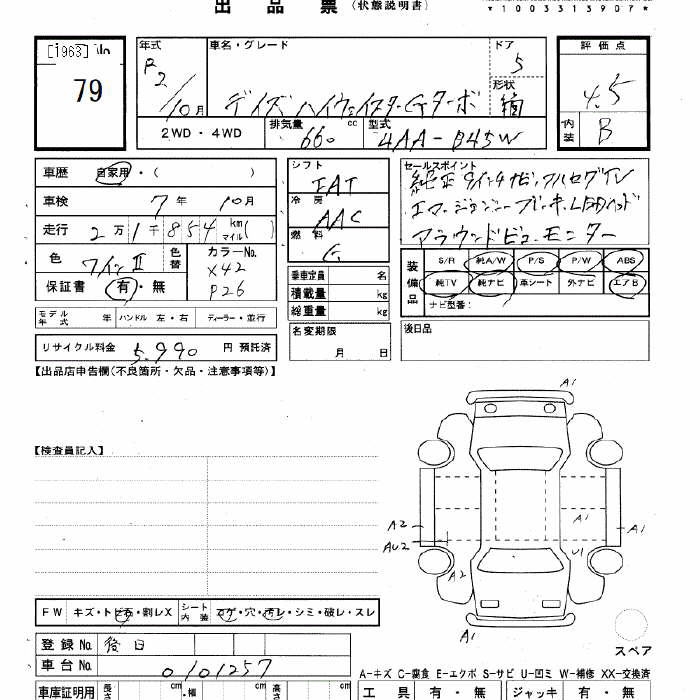 出 品 票 (状態説明書)
*1003313907*
[1963]
79
年式 R2/10月
車名・グレード デイズ ハイウェイスターGターボ
ドア 5
形状 箱
2WD・4WD
排気量 660 cc
型式 4AA-B45W
評価点 4.5
内装 B
車歴 自家用・( )
車検 7年 10月
走行 2万1千854 km(マイル)
色 ワインⅡ
色替
カラーNo. X42 P26
保証書 有・無
シフト IAT
冷房 AAC
燃料 G
セールスポイント
純正9インチナビ、フルセグTV
エマージェンシーブレーキ、LEDヘッド
アラウンドビューモニター
装備品 S/R 純A/W P/S P/W ABS
純TV 純ナビ 革シート 外ナビ エアB
ナビ型番:
乗車定員 名
積載量 kg
総重量 kg
モデル年式 年 ハンドル 左・右 ディーラー・並行
名変期限 月 日
後日品
リサイクル料金 5,990 円 預託済
【出品店申告欄(不良箇所・欠品・注意事項等)】
【検査員記入】
A1
A2
A1
A1
AU2
U1
A2
A1
スペア
FW キズ・トビ石・割レX
シート内装 コゲ・穴・汚レ・シミ・破レ・スレ
登録No. 後日
車台No. 0101257
A-キズ C-腐食 E-エクボ S-サビ U-凹ミ W-補修 XX-交換済
車庫証明用 長さ cm ・幅 cm 高さ cm
工具 有・無 ジャッキ 有・無